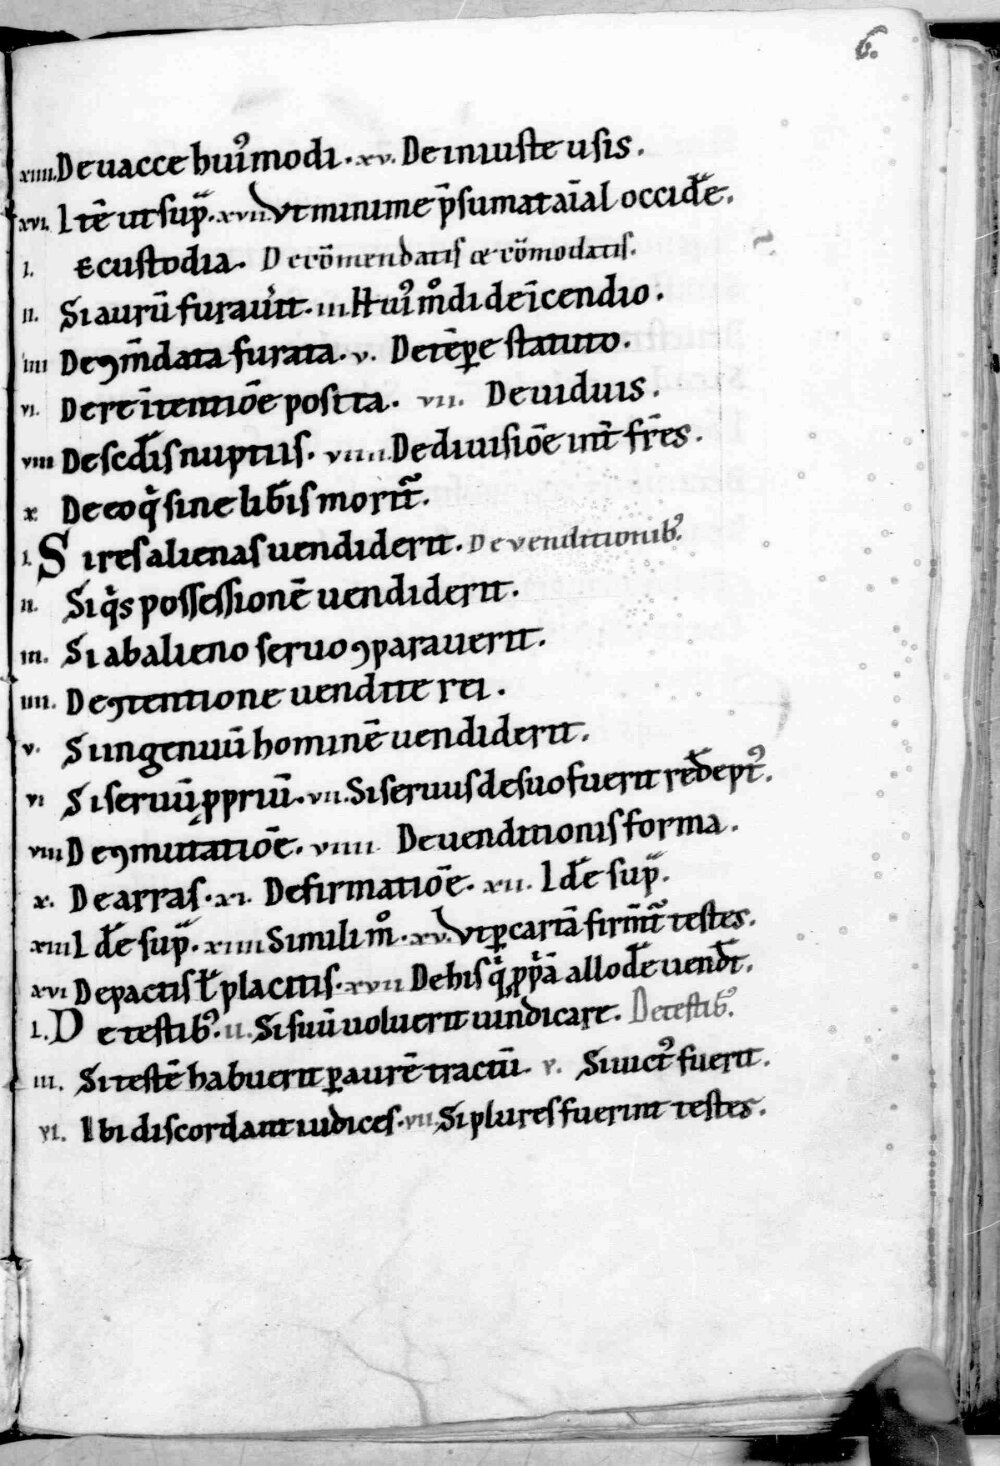 6.
xiiii. De uacce huiꝰmodi. xv. De iniuste usis.
xvi. Itē ut supᷓ. xvii. Vt minime p̄sumat aīal occidēe.
i. E custodia. De cōmendatis & cōmodatis.
ii. Si aurū furauit̄. iii. Huiꝰ mͦdi de īcendio.
iiii De ꝯm̄data furata. v. De tēꝑe statuto.
vi. De re ītentiōe postta. vii. De uiduis.
viii De scdīs nuptiis. viiii. De diuisiōe int̄ fr̄es.
x De eo qͥ sine lib̄is morit᷑.
i. Si res alienas uendiderit. De venditionibꝰ.
ii. Si qͥs possessionē uendiderit.
iii. Si ab alieno seruo ꝯparauerit.
iiii. De ꝯtentione uendite rei.
v. Si ingenuū hominē uendiderit.
vi Si seruū ꝓpriū. vii. Si seruus de suo fuerit redēptꝰ.
viii De ꝯmutatiōe. viiii De uenditionis forma.
x. De arras. xi. De firmatiōe. xii. Idē supᷓ.
xiii Idē supᷓ. xiiii Simili mͦ. xv. Vt ꝑ cartā firm̄t᷑ testes.
xvi De pactis ł placitis. xvii De his qͥ ꝓpͥā allodē uend̄t.
i. De testibꝰ. ii. Si suū uoluerit uindicare. De testibꝰ.
iii. Si testē habuerit ꝑ aurē tractū. v. Si uictꝰ fuerit.
vi. Ibi discordant iudices. vii. Si plures fuerint testes.